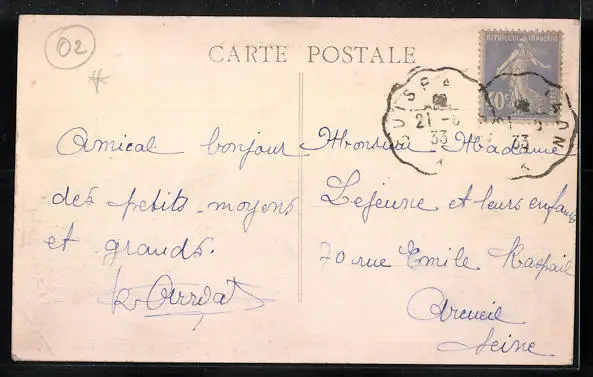 02
CARTE POSTALE
REPUBLIQUE FRANCAISE
40c
21 -8
33
33
Amical bonjour
des petits - moyens
et grands.
Monsieur Madame
Lejeune et leurs enfants
70 rue Emile Raspail
Arcueil
Seine